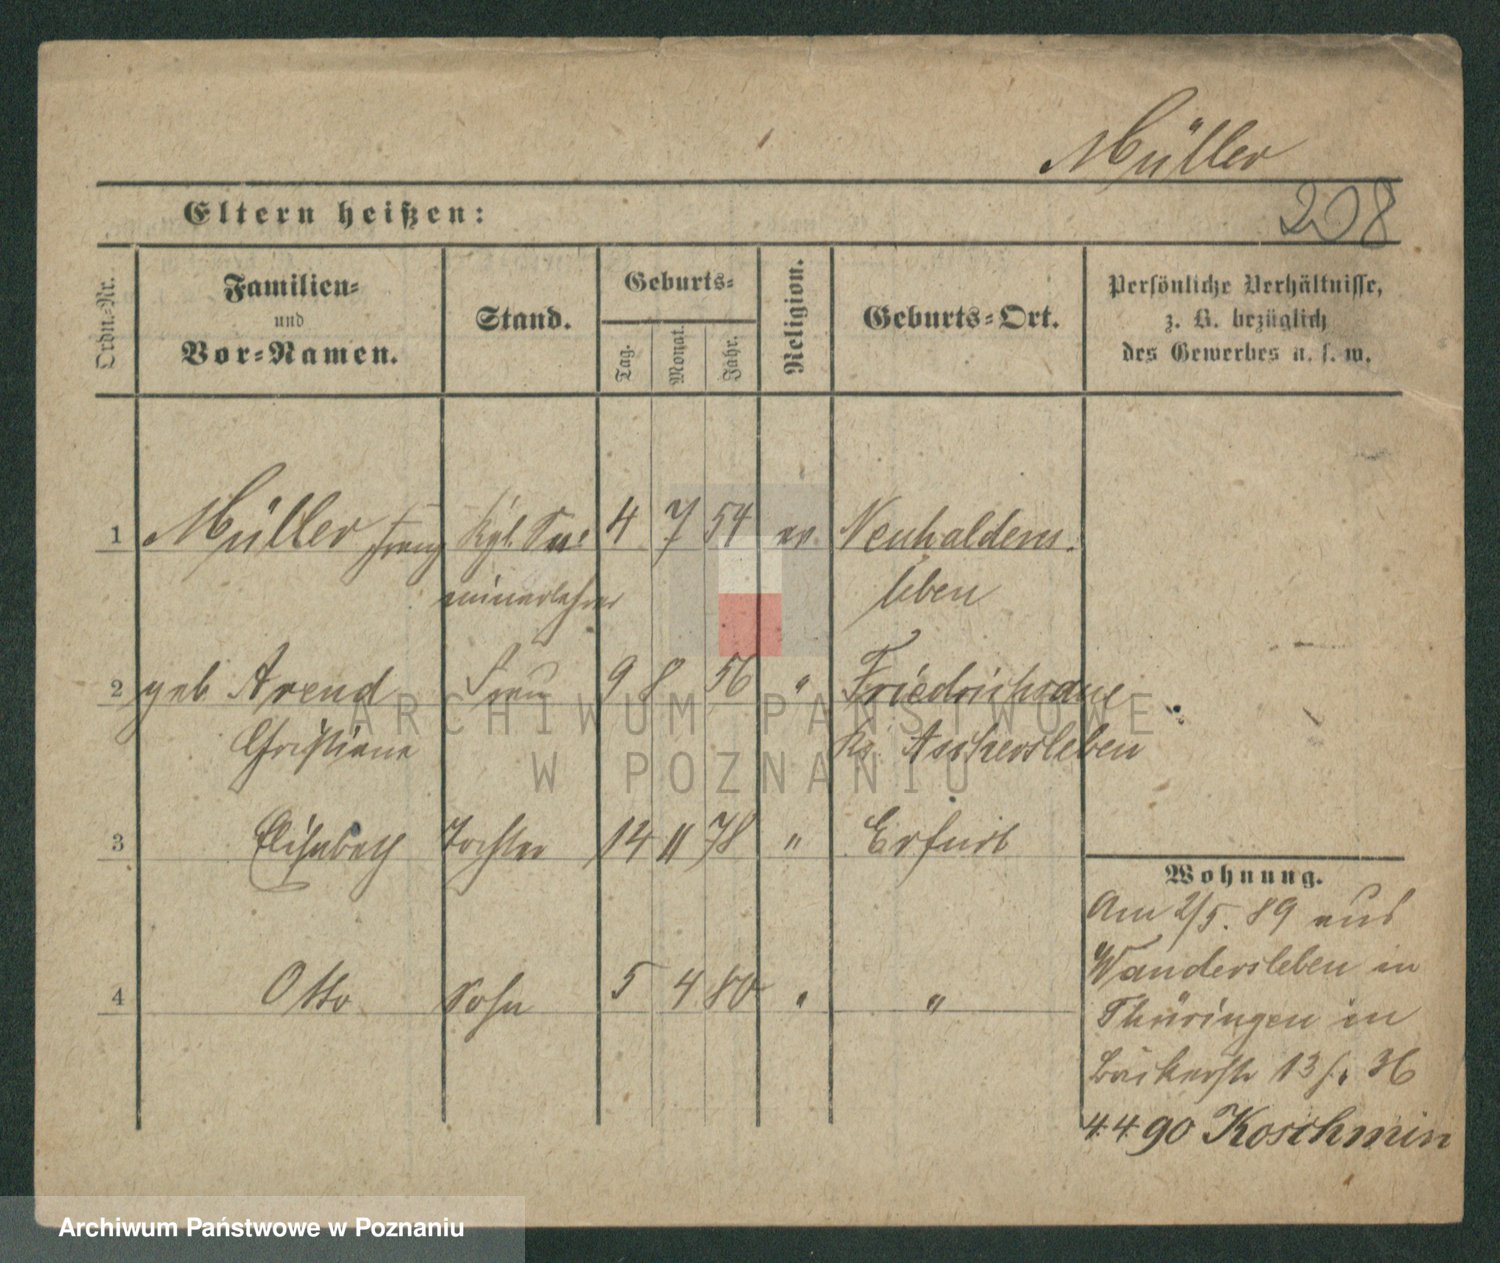 Müller
208
Eltern heißen:
Ordn.-Nr.
Familien-
und
Vor-Namen.
Stand.
Geburts-
Tag.
Monat.
Jahr.
Religion.
Geburts-Ort.
Persönliche Verhältnisse,
z. B. bezüglich
des Gewerbes u. s. w.
1 Müller Franz Kgl. Se- 4 7 54 ev. Neuhaldens-
minarlehrer leben
2 geb Arend Frau 9 8 56 " Friedrichsaue
Christiane Kr. Aschersleben
3 Elisabeth Tochter 14 11 78 " Erfurt
4 Otto Sohn 5 4 80 " "
Wohnung.
Am 2/5. 89 aus
Wandersleben in
Thüringen in
Bäckerstr 13 36
4.4 90 Koschmin
ARCHIWUM PAŃSTWOWE
W POZNANIU
Archiwum Państwowe w Poznaniu